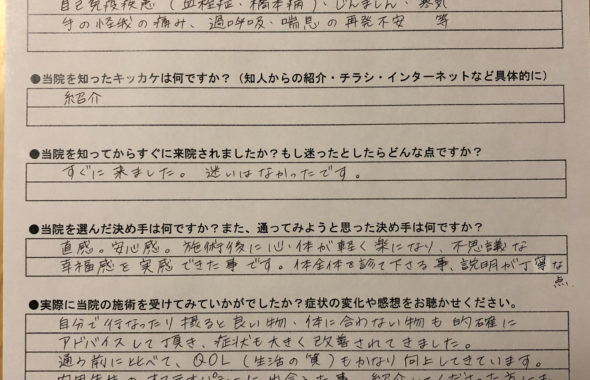 自己免疫疾患（血栓症・橋本病）・じんましん・寒気
手の怪我の痛み、過呼吸、喘息の再発不安　等
●当院を知ったキッカケは何ですか？（知人からの紹介・チラシ・インターネットなど具体的に）
紹介
●当院を知ってからすぐに来院されましたか？もし迷ったとしたらどんな点ですか？
すぐに来ました。迷いはなかったです。
●当院を選んだ決め手は何ですか？また、通ってみようと思った決め手は何ですか？
直感。安心感。施術後に心・体が軽く楽になり、不思議な
幸福感を実感できた事です。体全体を診て下さる事、説明が丁寧な
点.
●実際に当院の施術を受けてみていかがでしたか？症状の変化や感想をお聴かせください。
自分で行なったり摂ると良い物・体に合わない物も的確に
アドバイスして頂き、症状も大きく改善されてきました。
通う前にとくべて、QOL（生活の質）もかなり向上してきています。